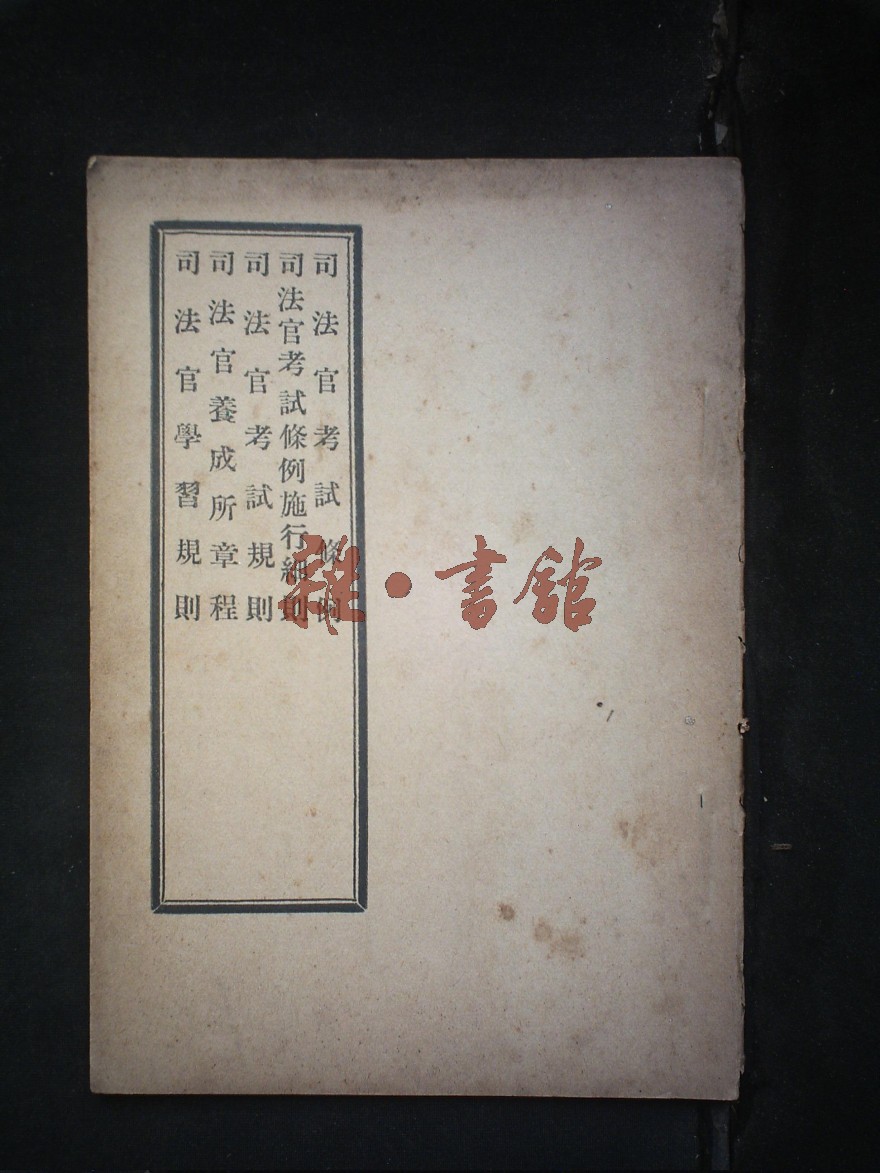 司法官考試條例
司法官考試條例施行細則
司法官考試規則
司法官養成所章程
司法官學習規則
雜·書館